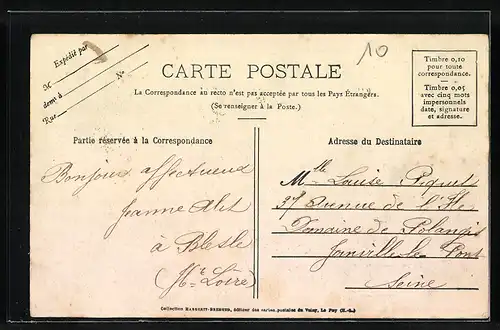 Expédié par
M
demt à
Rue
No
10
CARTE POSTALE
La Correspondance au recto n'est pas acceptée par tous les Pays Étrangers.
(Se renseigner à la Poste.)
Timbre 0,10
pour toute
correspondance.
Timbre 0,05
avec cinq mots
impersonnels
date, signature
et adresse.
Partie réservée à la Correspondance
Bonjour affectueux
Jeanne
à Blesle
(Hte Loire)
Adresse du Destinataire
Mlle Louise Piquet
37 Avenue de l'Ile
Domaine de Polangis
Joinville-le-Pont
Seine
Collection éditeur des cartes postales du Velay, Le Puy (H.-L.)